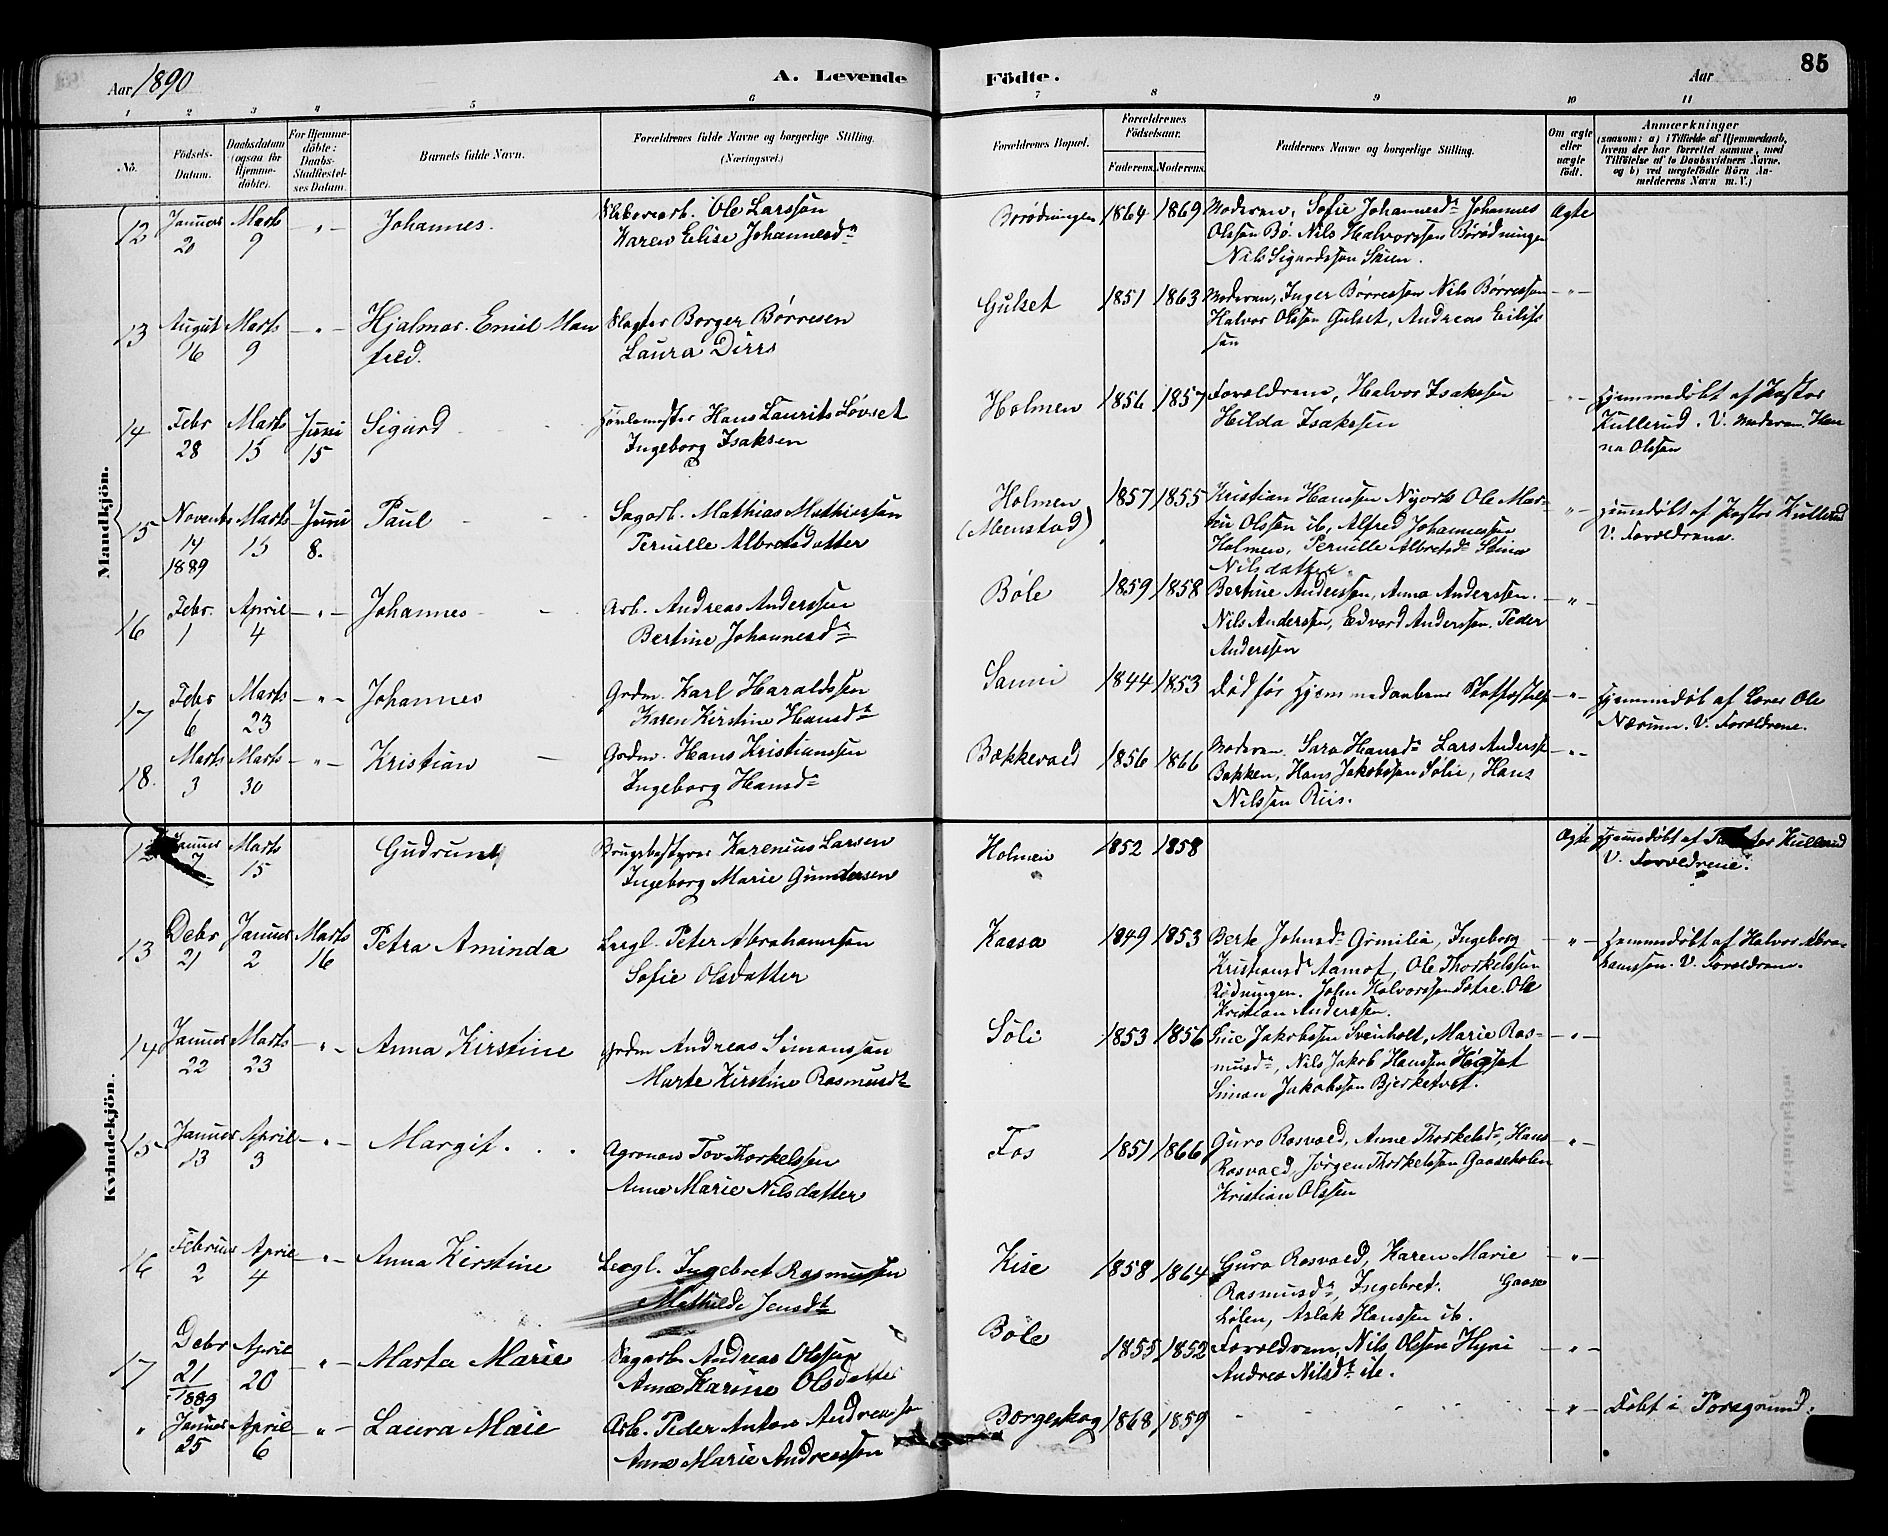 Aar 1890
A. Levende
Födte.
Aar
85
1 2 3 4 5 6 7 8 9 10 11
No.
Födsels-Datum.
Daabsdatum (ogsaa for Hjemmedöbte).
For Hjemmedöbte: Daabs-Stadfæstelses Datum.
Barnets fulde Navn.
Forældrenes fulde Navne og borgerlige Stilling. (Næringsvei.)
Forældrenes Bopæl.
Forældrenes Födselsaar.
Faderens. Moderens.
Faddernes Navne og borgerlige Stilling.
Om ægte eller uægte födt.
Anmærkninger
(saasom: a) i Tilfælde af Hjemmedaab, hvem der har forrettet samme, med Tilföielse af to Daabsvidners Navne, og b) ved uægtefödte Börn Anmelderens Navn m. V.)
Mandkjön.
12 Januar 20 Marts 9 - " - Johannes. Ole Larssøn
Karen Elise Johannesd.
Borødningen 1864 1869 Moderen, Sofie Johannesd. Johannes
Olssøn Bö. Nils Halvorssøn Børødningen
Nils Sigurdssøn Skien.
Ægte
13 August 16 Marts 9 - " - Hjalmar Emil Man
fred.
Slagter Borger Børresen
Laura Dirrs
Gulset 1851 1863 Moderen, Inger Børressøn Nils Børressøn
Halvor Olssøn Gulset, Andreas Eilifs
søn
- " -
14 Febr 28 Marts 15 Juni 15 Sigurd Hans Laurits Løvset
Ingeborg Isaksen
Holmen 1856 1857 Forældrene, Halvor Isakssøn
Hilda Isakssøn
- " - Hjemmedøbt af Pastor
Kullerud. V. Moderen. Han
na Olssøn
15 Novemb 14 1889 Marts 15 Juni 8. Paul Sagarb. Mathias Mathiessøn
Pernille Albretsdatter
Holmen
(Menstad)
1857 1855 Kristian Hanssøn Nyork Ole Mar-
tin Olssøn ib, Alfred Johannessøn
Holmen, Pernille Albretsd. Stina
Nilsdatter.
- " - Hjemmedøbt af Pastor Kullerud
V. Forældrene.
16 Febr. 1 April 4 - " - Johannes Arb. Andreas Anderssøn
Bertine Johannesd.
Bøle 1859 1858 Bertine Anderssøn, Anna Anderssen.
Nils Anderssøn, Edvard Anderssøn. Peder
Anderssøn
- " -
17 Febr 6 Marts 23 - " - Johannes Grdm. Karl Haraldssøn
Karen Kirstine Hansd.
Sanni 1844 1853 Død før Hjemmedaabens Stadfæstelse - " - Hjemmedøbt af Lærer Ole
Nærum. V. Forældrene.
18. Marts 3 Marts 30 - " - Kristian Grdm. Hans Kristianssøn
Ingeborg Hansd.
Bækkevold 1856 1866 Moderen. Sara Hansd. Lars Anderss.
Bakken, Hans Jakobssøn Sølie, Hans
Nilssøn Riis.
- " -
Kvindekjön.
12 Januar Marts 15 Gudrun Brugsbestyrer Karenius Larsen
Ingeborg Marie Gundersen
Holmen 1852 1858 Ægte Hjemmedøbt af Pastor Kullerud
V. Forældrene.
13 Debr 21 Januar 2 Marts 16 Petra Aminda Leegl. Peter Abrahamssøn
Sofie Olsdatter
Kaasa 1849 1853 Berte Johnsd. Grinilia, Ingeborg
Kristiansd. Aamot, Ole Thorkelssøn
Rødningen. John Halvorssøn Sætre. Ole
Kristian Anderssøn.
- " - Hjemmedøbt af Halvor Abra-
hamssøn. V. Forældrene.
14 Januar 22 Marts 23 - " - Anna Kirstine Grdm Andreas Simonssøn
Marte Kirstine Rasmusd.
Søli 1853 1856 Jakobssøn Sveinholt, Marie Ras-
musd., Nils Jakob Hanssøn Høgset
Simon Jakobssøn Bjerketvet.
- " -
15 Januar 23 April 3 - " - Margit. Agronom Tov Thorkelssøn
Anne Marie Nilsdatter
Fos 1851 1866 Guro Rosvald, Anne Thorkelsd., Hans
Rosvald, Jørgen Thorkelssøn Gaaseholen
Kristian Olssøn
- " -
16 Februar 2 April 4 - " - Anna Kirstine Leegl. Ingebret Rasmussøn
Mathilde Jensd.
Kise 1858 1864 Guro Rosvald, Karen Marie
Rasmusd., Ingebret. Gaase
holen, Aslak Hanssøn ib.
- " -
17 Debr 21 1889 April 20 - " - Marta Marie Sagarb. Andreas Olssøn
Anne Karine Olsdatter
Bøle 1855 1852 Forældrene, Nils Olssøn Hyni
Andrea Nilsd. ib.
- " -
" Januar 25 April 6 - " - Laura Marie Arb. Peder Anton Andreassøn
Anne Marie Andreassøn
Borgeskog 1868 1859 - " - Døbt i Porsgrund.